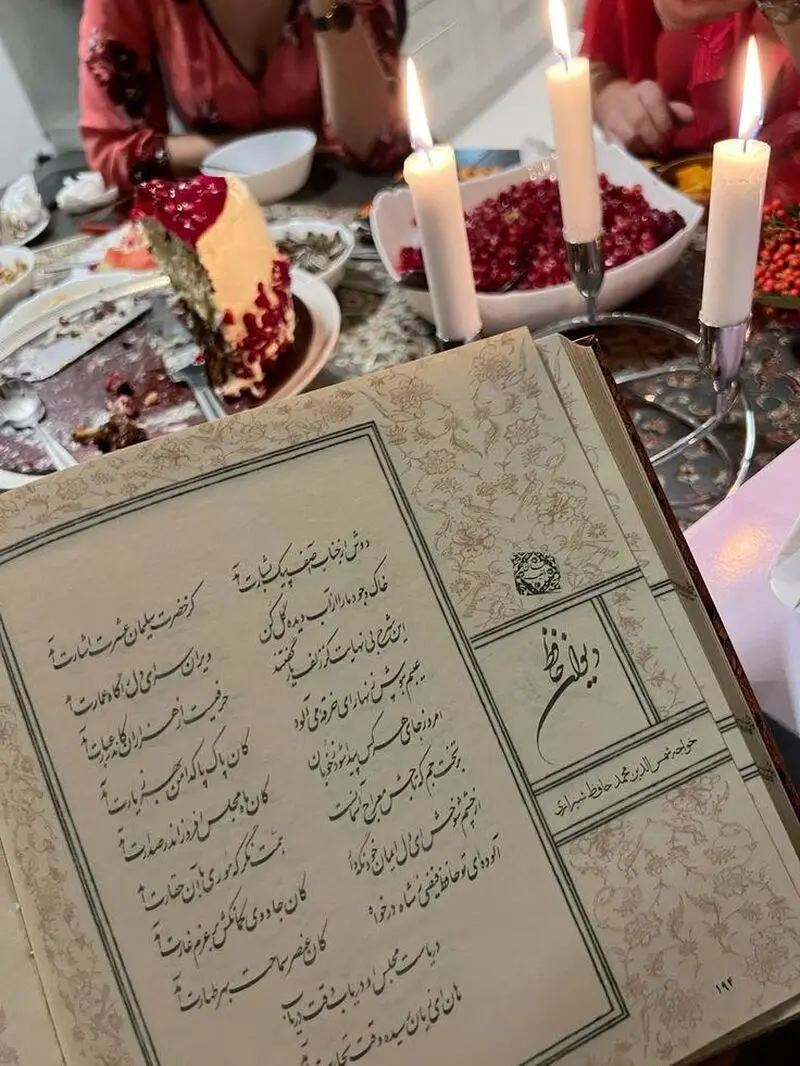 دوش از جناب آصف پیک بشارت آمد
کز حضرت سلیمان عشرت اشارت آمد
خاک وجود ما را از آب دیده گل کن
ویران سرای دل را گاه عمارت آمد
این شرح بی نهایت کز زلف یار گفتند
حرفیست از هزاران کاندر عبارت آمد
عیبم بپوش زنهار ای خرقه می آلود
کان پاک پاکدامن بهر زیارت آمد
امروز جای هر کس پیدا شود ز خوبان
کان ماه مجلس افروز اندر صدارت آمد
بر تخت جم که تاجش معراج آسمانست
همت نگر که موری با آن حقارت آمد
از چشم شوخش ای دل ایمان خود نگهدار
کان جادوی کمانکش بر عزم غارت آمد
آلوده ای تو حافظ فیضی ز شاه درخواه
کان عنصر سماحت بهر طهارت آمد
دریاست مجلس او دریاب وقت دریاب
هان ای زیان رسیده وقت تجارت آمد
دیوان حافظ
خواجه شمس الدین محمد حافظ شیرازی
۱۹۴